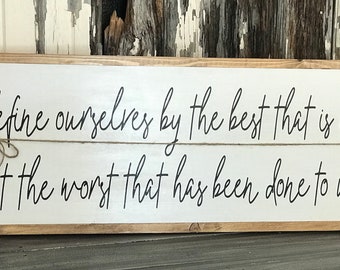 efine ourselves by the best that is
t the worst that has been done to u